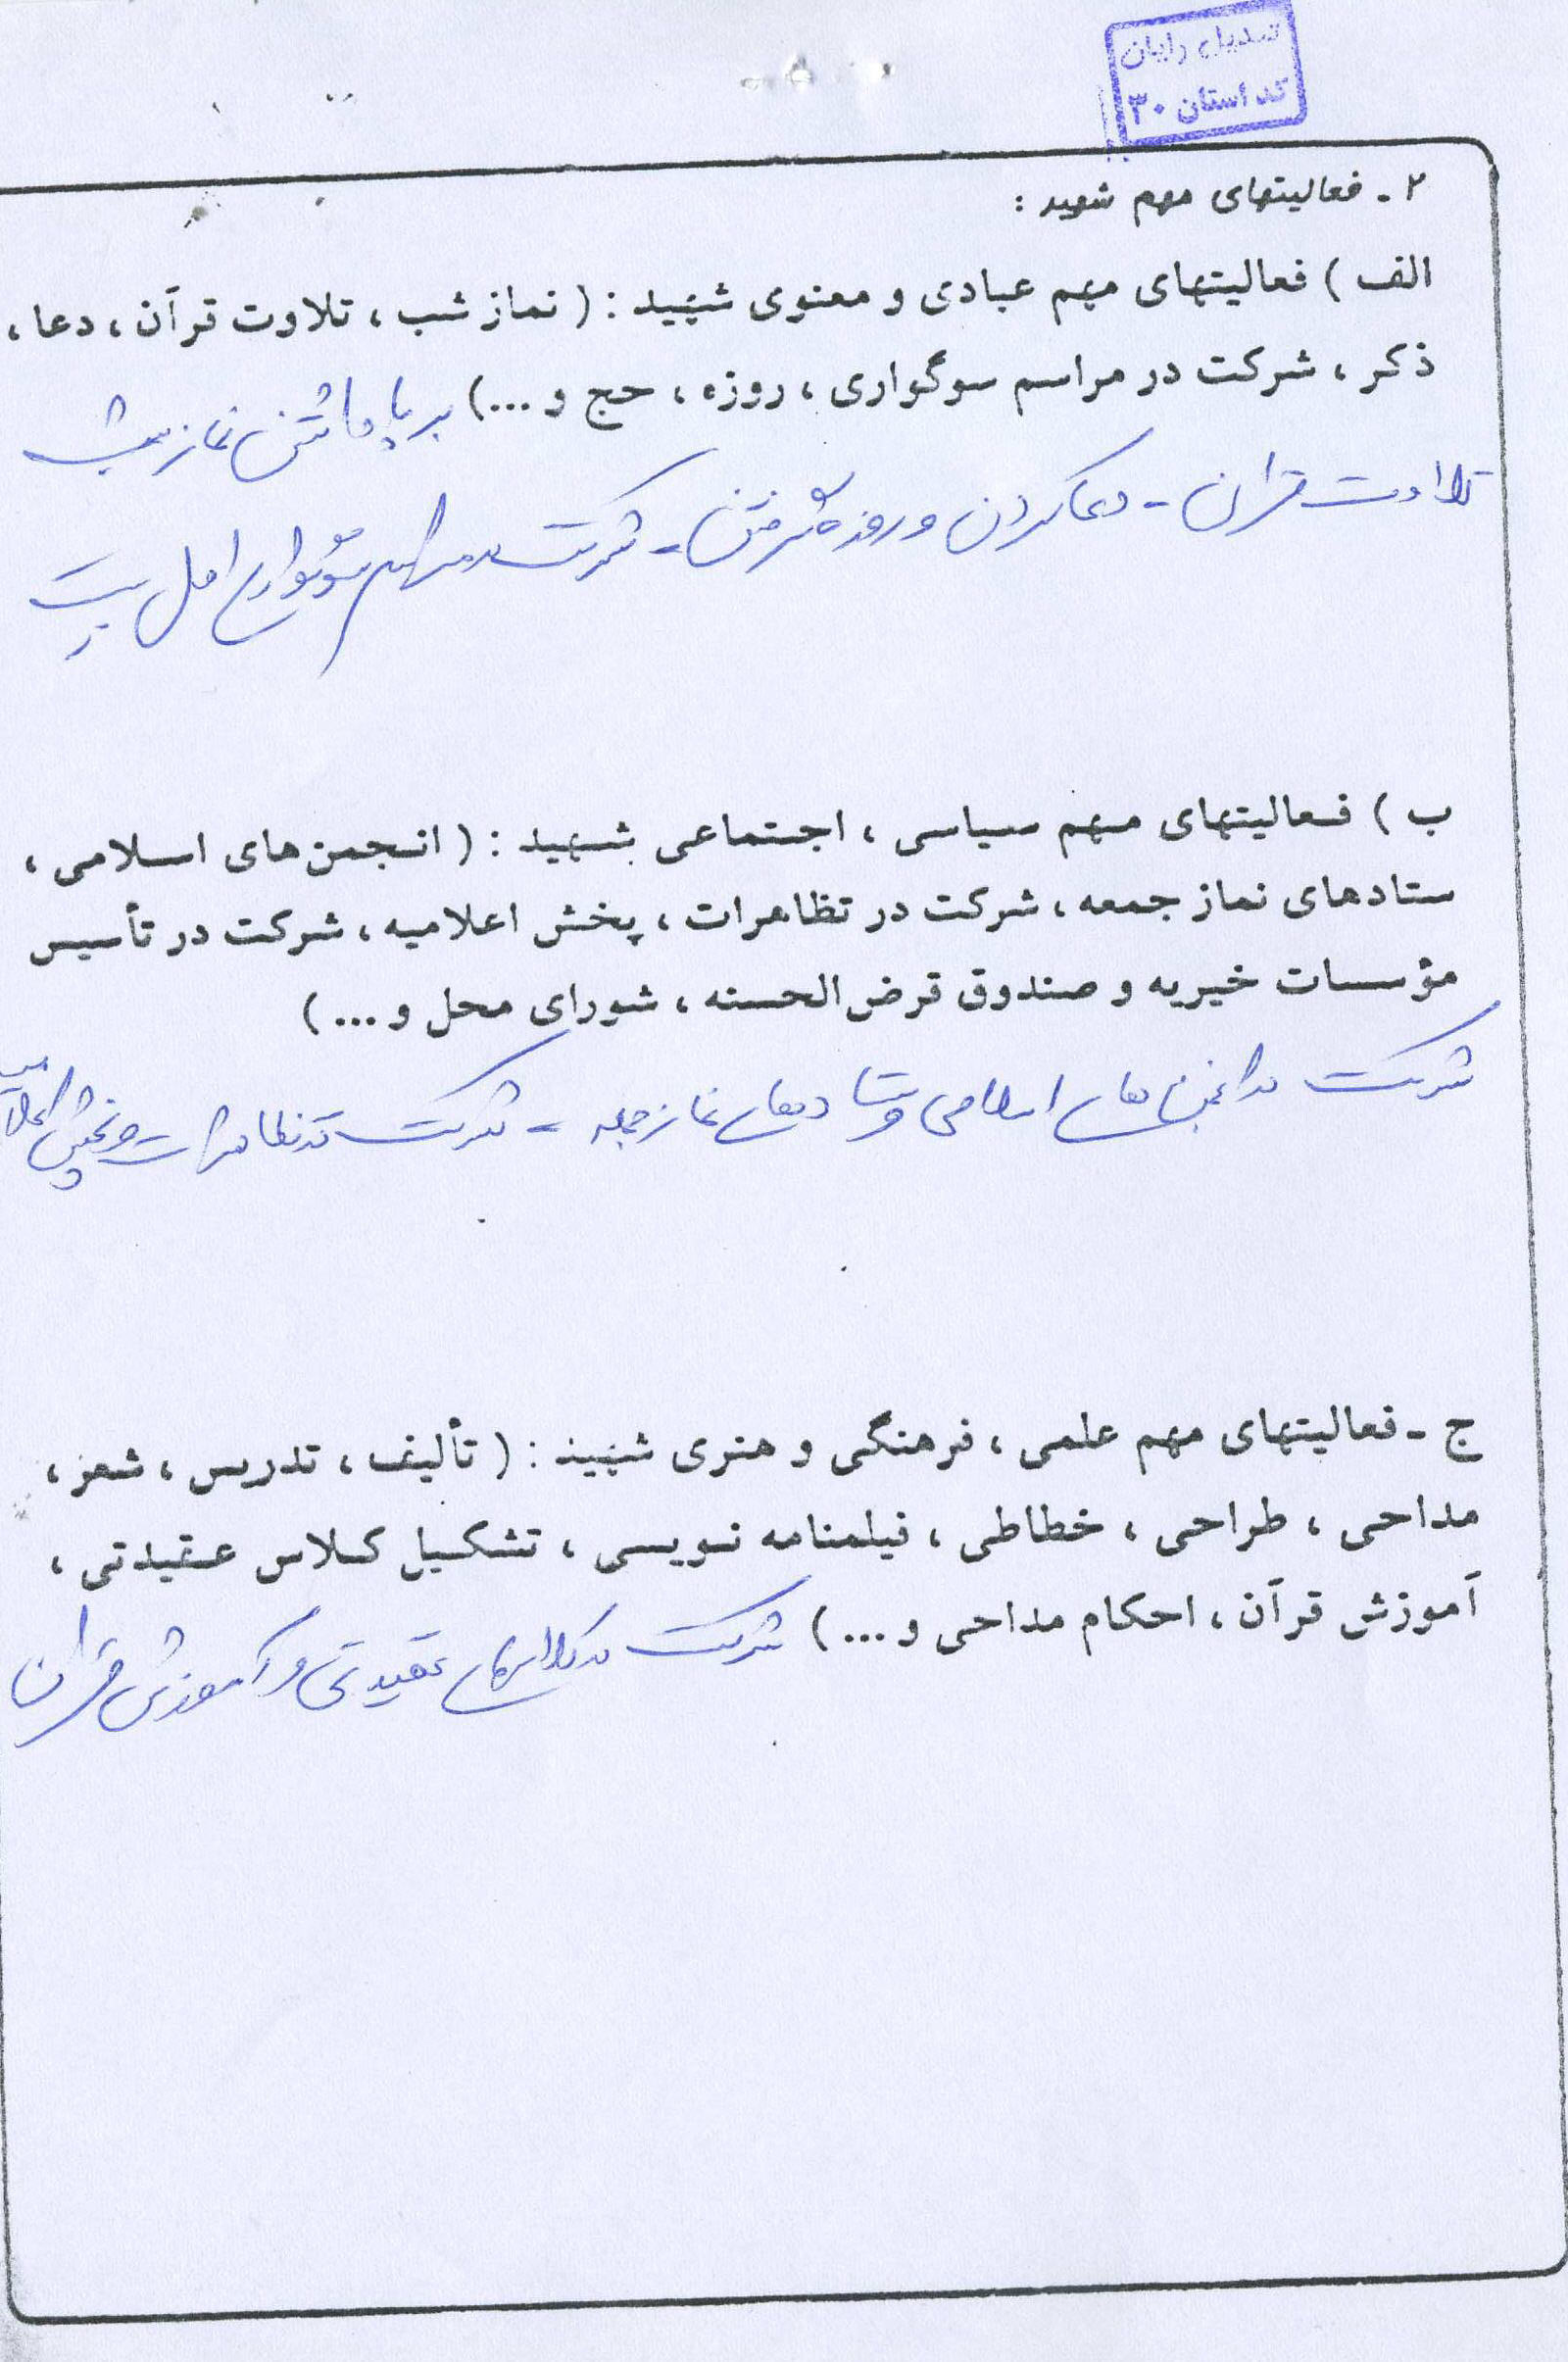 تبدیل رایان
کد استان ۳۰
۲ - فعالیتهای مهم شهید :
الف ) فعالیتهای مهم عبادی و معنوی شهید : ( نماز شب ، تلاوت قرآن ، دعا ،
ذکر ، شرکت در مراسم سوگواری ، روزه ، حج و ...) برپا داشتن نماز شب
تلاوت قرآن - دعا کردن و روزه گرفتن - شرکت در مراسم سوگواری اهل بیت
ب ) فعالیتهای مهم سیاسی ، اجتماعی شهید : ( انجمن های اسلامی ،
ستادهای نماز جمعه ، شرکت در تظاهرات ، پخش اعلامیه ، شرکت در تأسیس
مؤسسات خیریه و صندوق قرض الحسنه ، شورای محل و ... )
شرکت در انجمن های اسلامی و ستادهای نماز جمعه - شرکت در تظاهرات و پخش اعلامیه
ج - فعالیتهای مهم علمی ، فرهنگی و هنری شهید : ( تألیف ، تدریس ، شعر ،
مداحی ، طراحی ، خطاطی ، فیلمنامه نویسی ، تشکیل کلاس عقیدتی ،
آموزش قرآن ، احکام مداحی و ... ) شرکت در کلاس های عقیدتی و آموزش قرآن